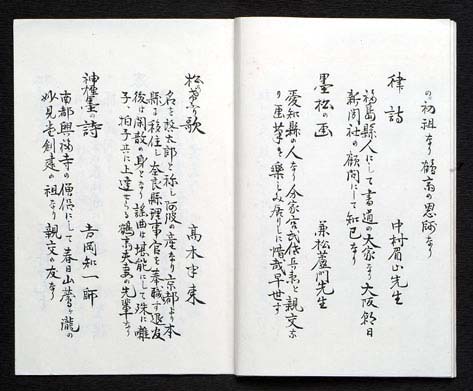 の初祖なり鶴斎の恩師なり
律詩　中村眉山先生
福島縣人にして書道の大家なり大阪朝日
新聞社の顧問にして知己なり
墨松の画　兼松蘆門先生
愛知縣の人なり今家宮武佐兵衛と親交あ
り画筆を楽しみ居りしに惜哉早世す
松の葛の歌　高木中東
名を啓太郎と称し阿波の産なり京都より本
縣に移住し奈良縣理事官を奉職す退友
後は閑散の身となり謡曲は堪能にして殊に囃
子、拍子共に上達せらる鶴斎夫妻の先輩なり
神種墨の詩　吉岡知一師
南都興福寺の僧侶にして春日山鶯か瀧の
妙見宮創建の祖なり親交の友なり